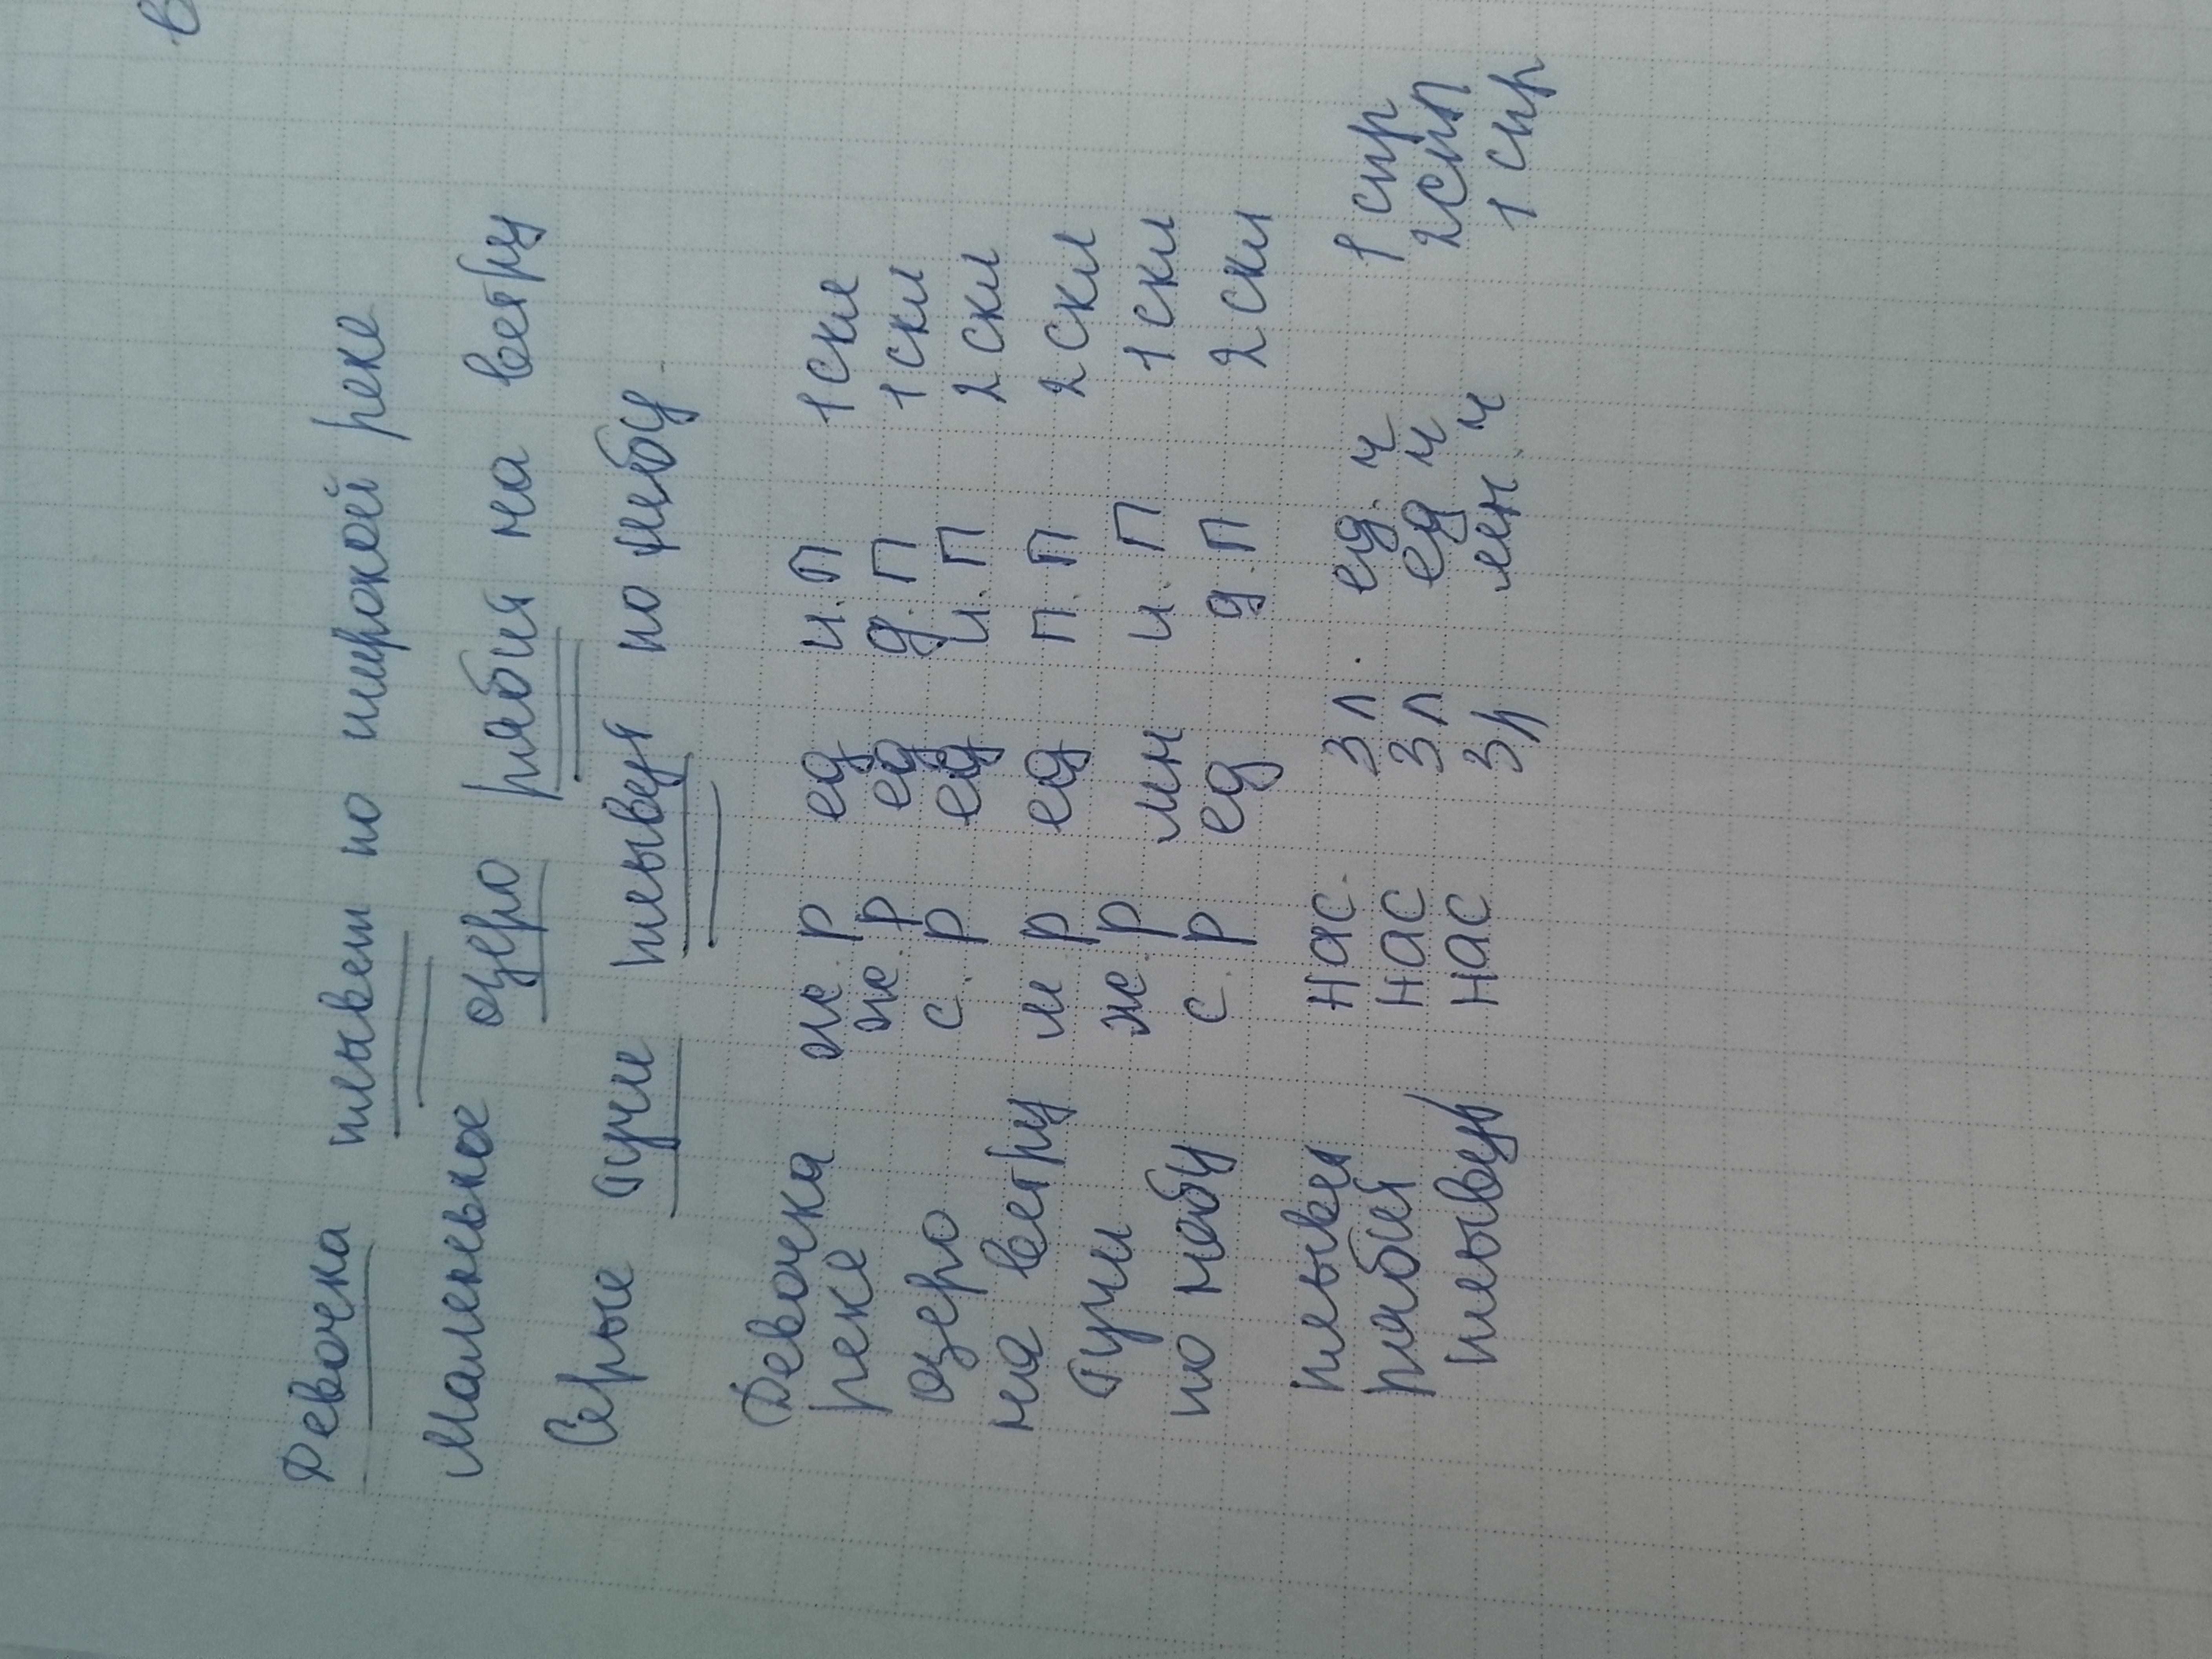 В
Девочка плывет по широкой реке
Маленькое озеро рябит на ветру
Серые тучи плывут по небу.
Девочка ж.р ед и.п 1 скл
реке ж.р ед д.п 1 скл
озеро с.р ед и.п 2 скл
на ветру м р ед п.п 2 скл
Тучи ж.р мн и.п 1 скл
по небу с.р ед д.п 2 скл
плывет нас. 3 л. ед.ч 1 спр
рябит нас 3 л ед ч 2 спр
плывут нас 3 л мн.ч 1 спр